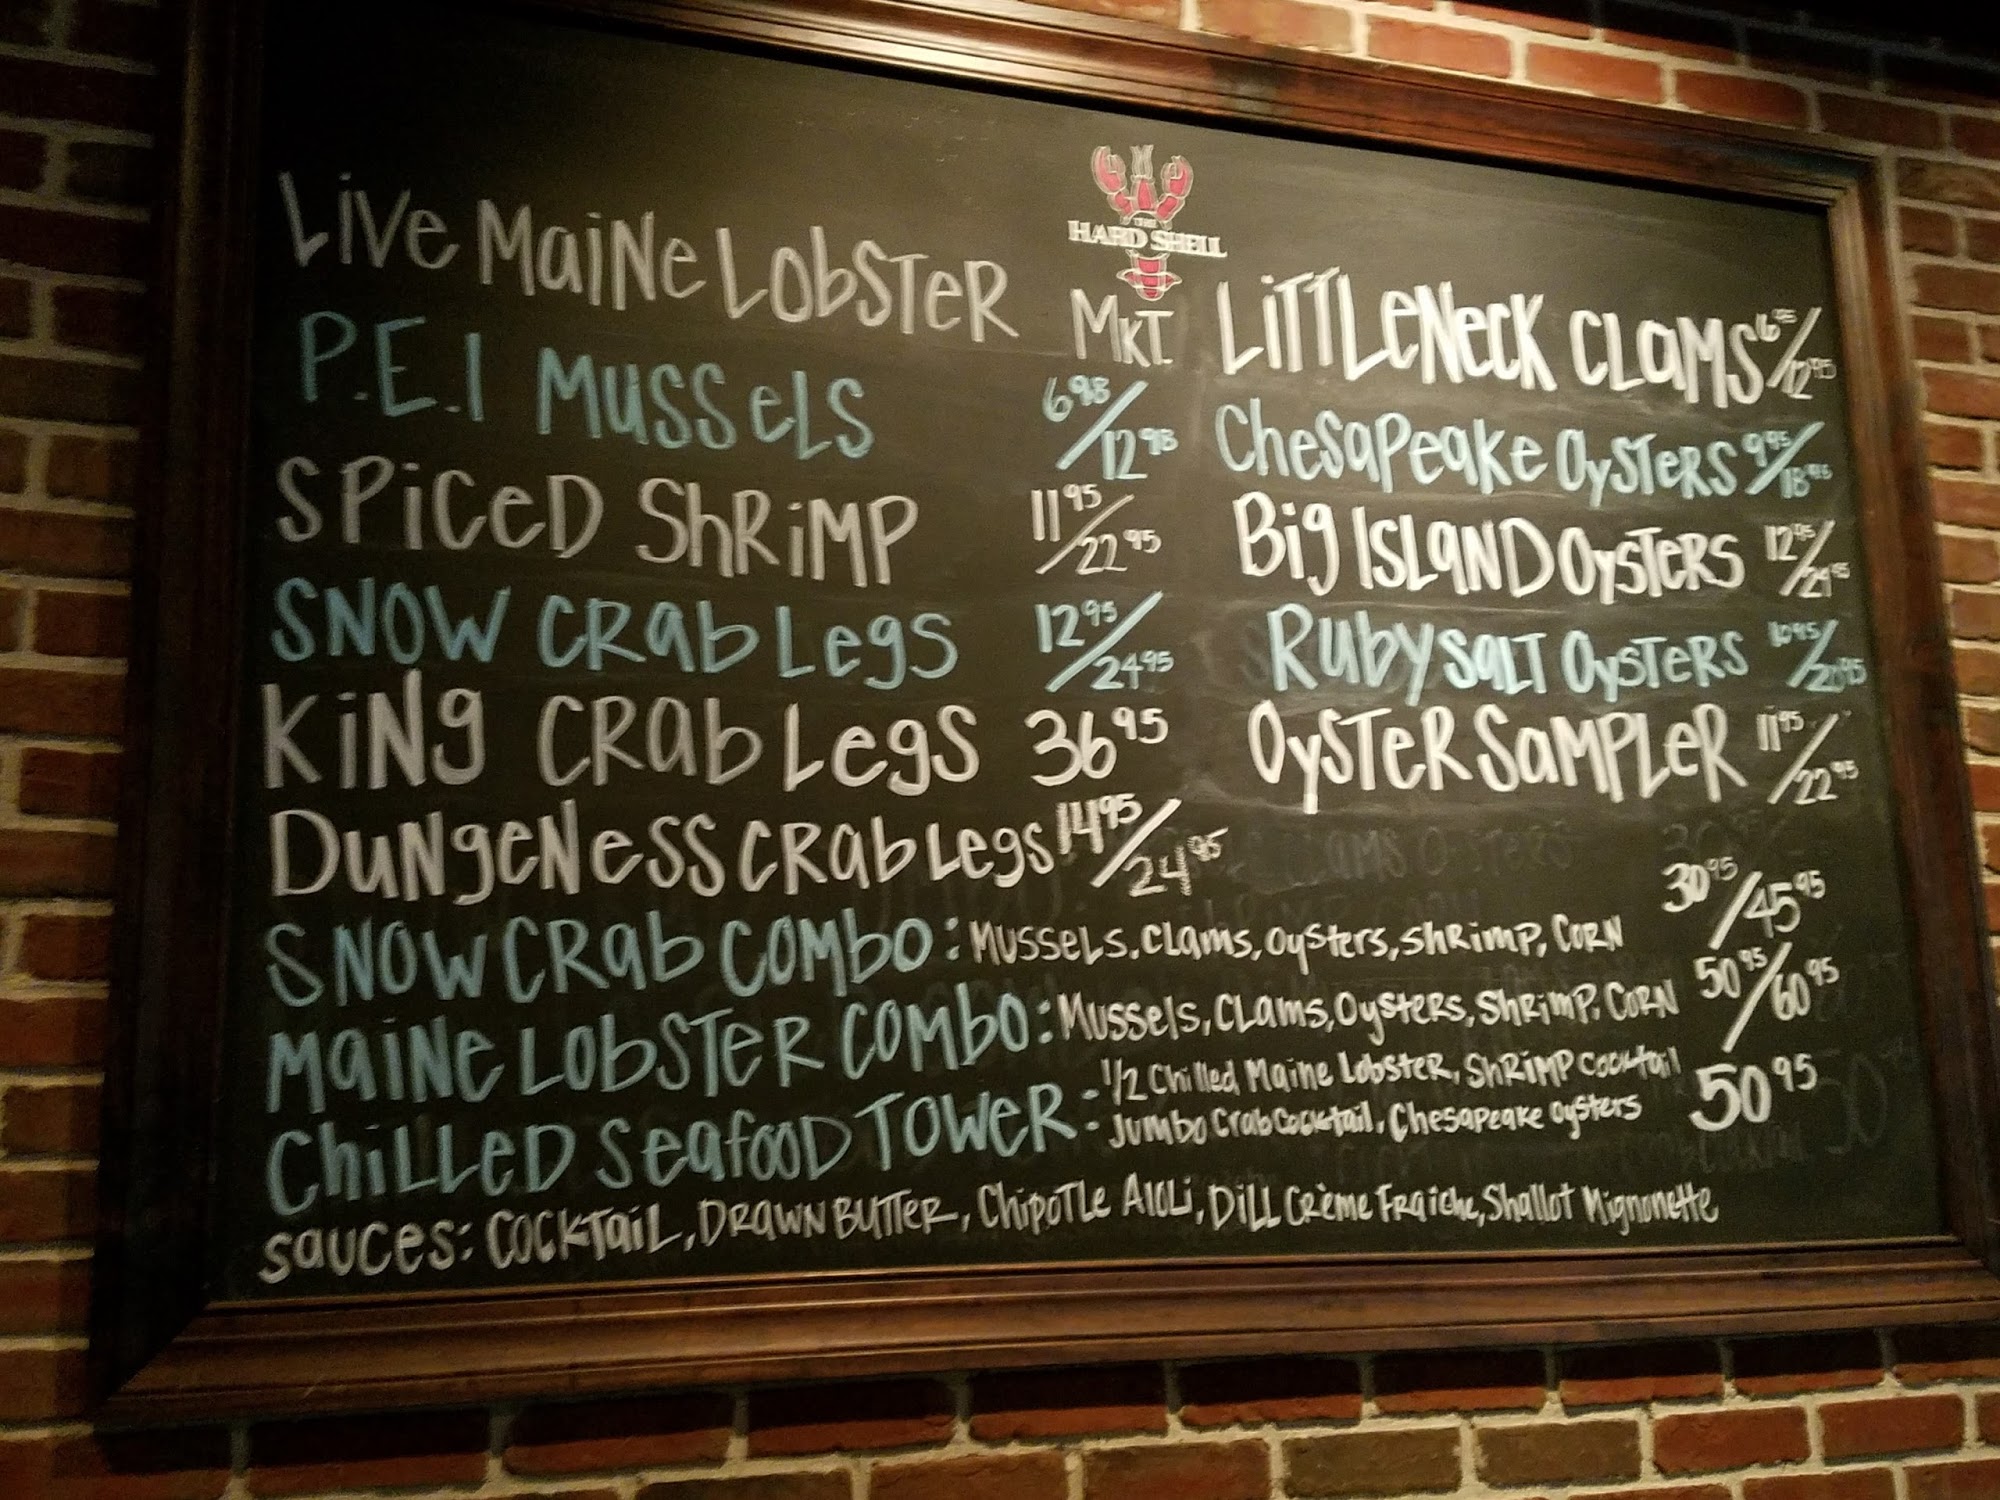 THE
HARD SHELL
Live Maine Lobster Mkt.
P.E.I Mussels 6 98/12 98
Spiced Shrimp 11 95/22 95
Snow Crab Legs 12 95/24 95
King Crab Legs 36 95
Dungeness Crab Legs 14 95/24 95
Littleneck Clams 6 95/12 95
Chesapeake Oysters 9 95/18 95
Big Island Oysters 12 95/24 95
Ruby Salt Oysters 10 95/20 95
Oyster Sampler 11 95/22 95
Snow Crab Combo: Mussels, Clams, Oysters, Shrimp, Corn 30 95/45 95
Maine Lobster Combo: Mussels, Clams, Oysters, Shrimp, Corn 50 95/60 95
Chilled Seafood Tower: 1/2 Chilled Maine Lobster, Shrimp Cocktail
Jumbo Crab Cocktail, Chesapeake Oysters 50 95
Sauces: Cocktail, Drawn Butter, Chipotle Aioli, Dill Crème Fraiche, Shallot Mignonette